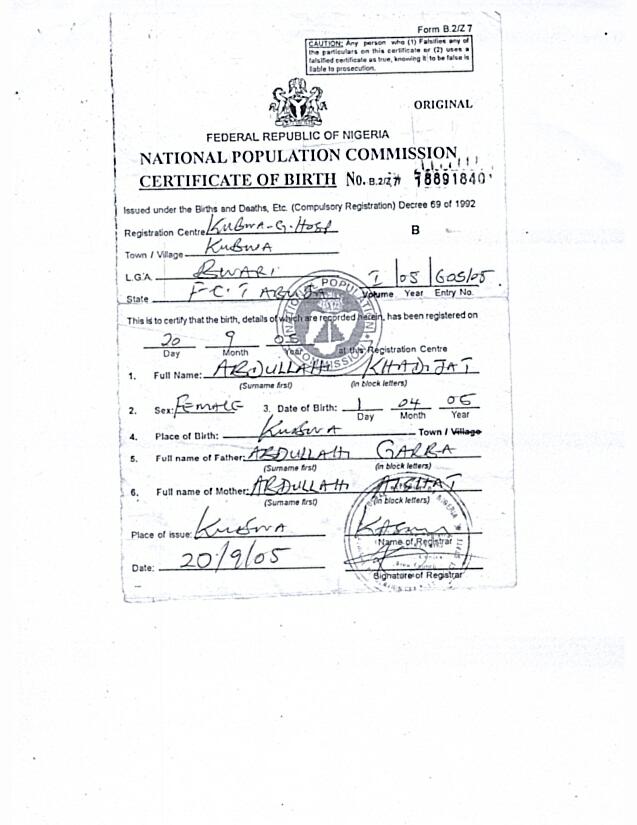 Form B.2/Z 7
CAUTION: Any person who (1) Falsifies any of
the particulars on this certificate or (2) uses a
falsified certificate as true, knowing it to be false is
liable to prosecution.
ORIGINAL
FEDERAL REPUBLIC OF NIGERIA
NATIONAL POPULATION COMMISSION
CERTIFICATE OF BIRTH No. B.2/Z/7 18891840
Issued under the Births and Deaths, Etc. (Compulsory Registration) Decree 69 of 1992
Registration Centre KUBWA-G-HOSP B
Town / Village KUBWA
L.G.A. BWARI I 05 605/05
State F-C.T ABUJA Volume Year Entry No.
This is to certify that the birth, details of which are recorded herein, has been registered on
20 9
Day Month Year at this Registration Centre
1. Full Name: ABDULLAHI KHADIJAT
(Surname first) (in block letters)
2. Sex: FEMALE 3. Date of Birth: 1 04 05
Day Month Year
4. Place of Birth: KUBWA Town / Village
5. Full name of Father: ABDULLAHI GARBA
(Surname first) (in block letters)
6. Full name of Mother: ABDULLAHI AISHAT
(Surname first) (in block letters)
Place of issue: KUBWA
Name of Registrar
Date: 20/9/05
Signature of Registrar
NATIONAL POPULATION COMMISSION